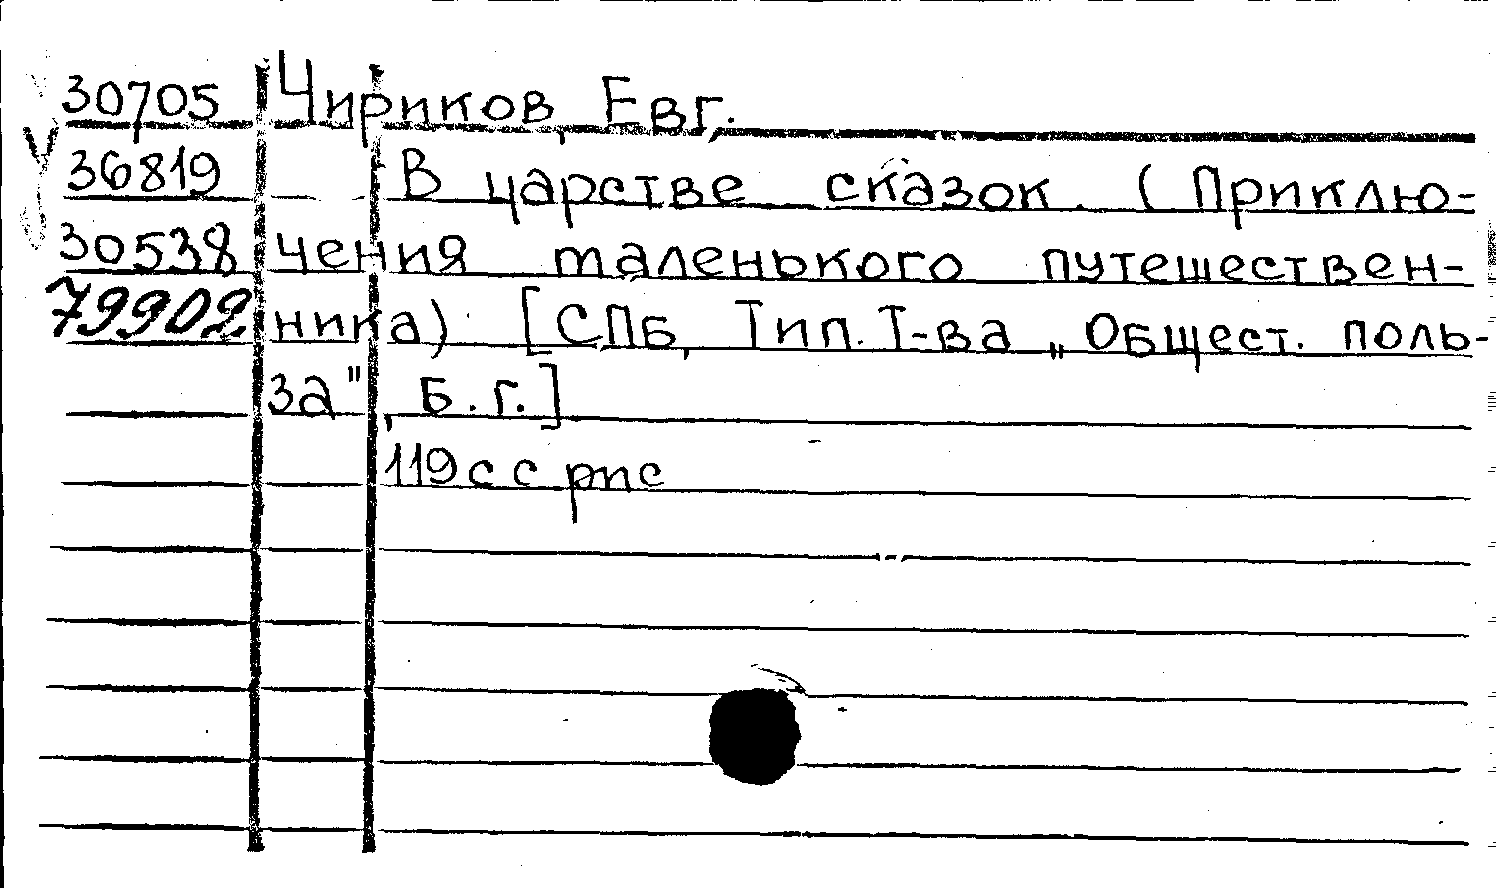 30705 Чириков, Евг.
36819 В царстве сказок. (Приклю-
30538 чения маленького путешествен-
79902 ника) [СПБ, Тип. Т-ва „Общест. поль-
за", Б. г.]
119 с с рис